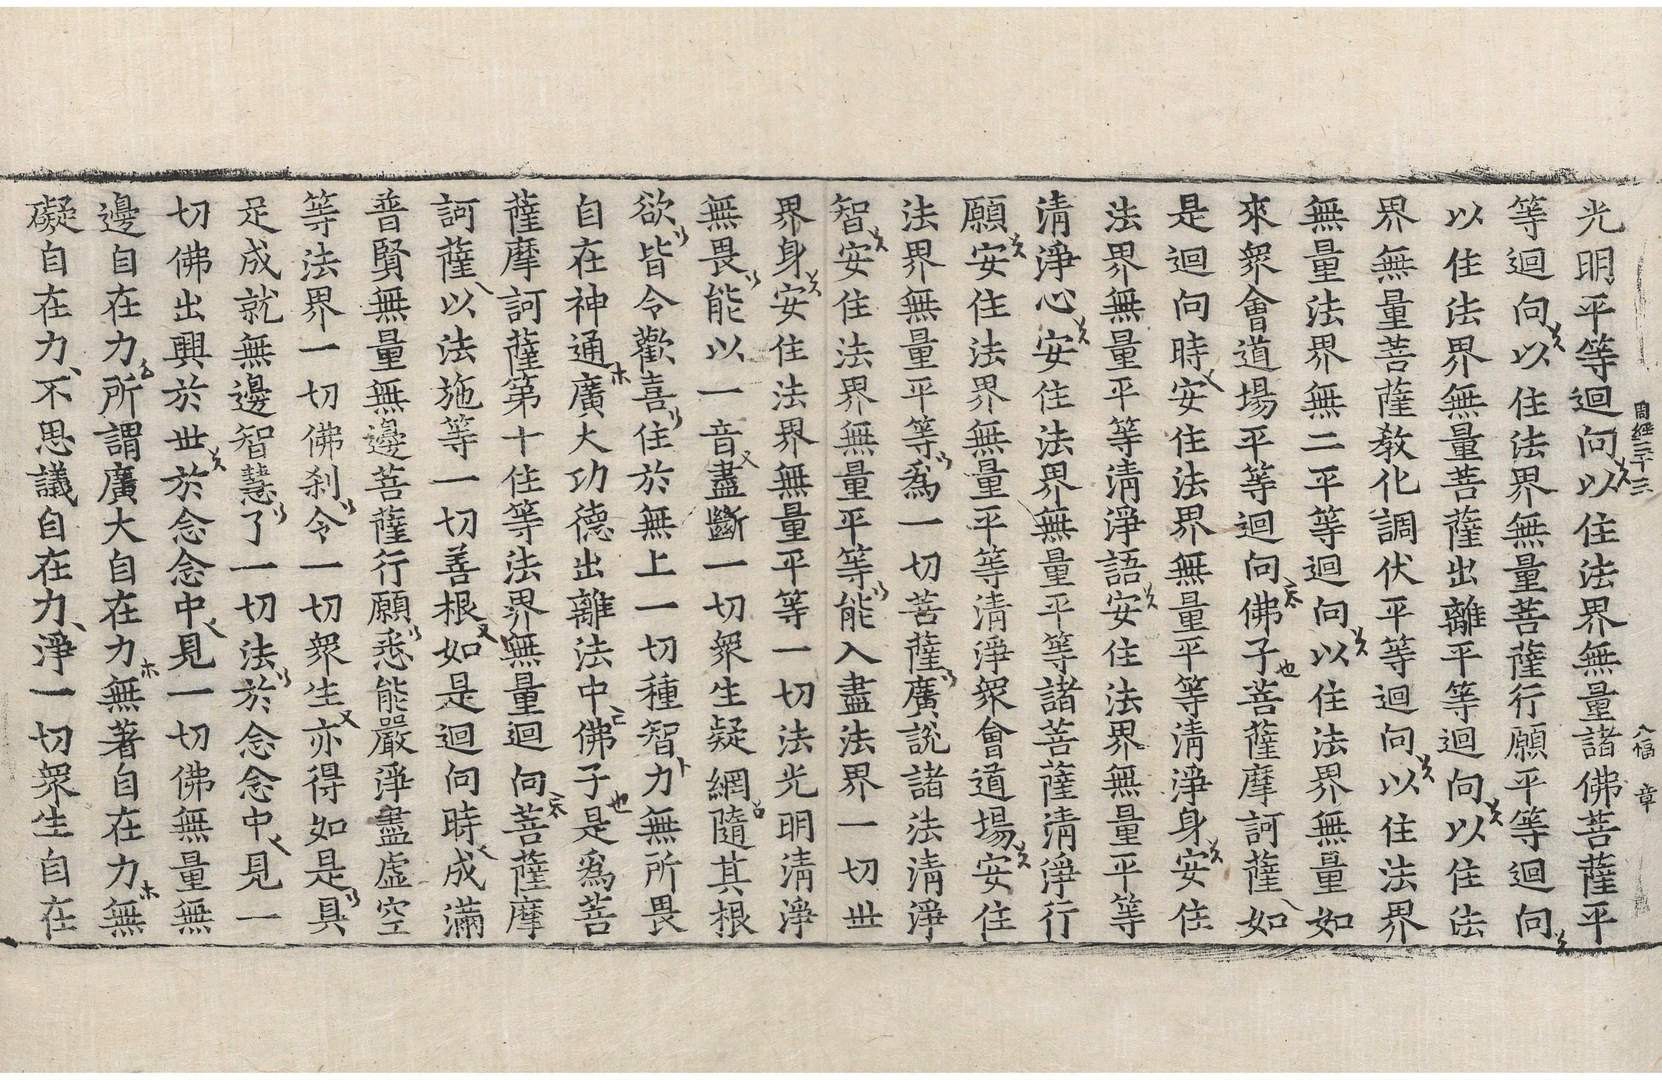 光明平等迴向以住法界無量諸佛菩薩平
等迴向以住法界無量菩薩行願平等迴向
以住法界無量菩薩出離平等迴向以住法
界無量菩薩教化調伏平等迴向以住法界
無量法界無二平等迴向以住法界無量如
來眾會道場平等迴向佛子菩薩摩訶薩如
是迴向時安住法界無量平等清淨身安住
法界無量平等清淨語安住法界無量平等
清淨心安住法界無量平等諸菩薩清淨行
願安住法界無量平等清淨眾會道場安住
法界無量平等為一切菩薩廣說諸法清淨
智安住法界無量平等能入盡法界一切世
界身安住法界無量平等一切法光明清淨
無畏能以一音盡斷一切眾生疑網隨其根
欲皆令歡喜住於無上一切種智力無所畏
自在神通廣大功德出離法中佛子是為菩
薩摩訶薩第十住等法界無量迴向菩薩摩
訶薩以法施等一切善根如是迴向時成滿
普賢無量無邊菩薩行願悉能嚴淨盡虛空
等法界一切佛剎令一切眾生亦得如是具
足成就無邊智慧了一切法於念念中見一
切佛出興於世於念念中見一切佛無量無
邊自在力所謂廣大自在力無著自在力無
礙自在力不思議自在力淨一切眾生自在
周經三十三 八幅 章